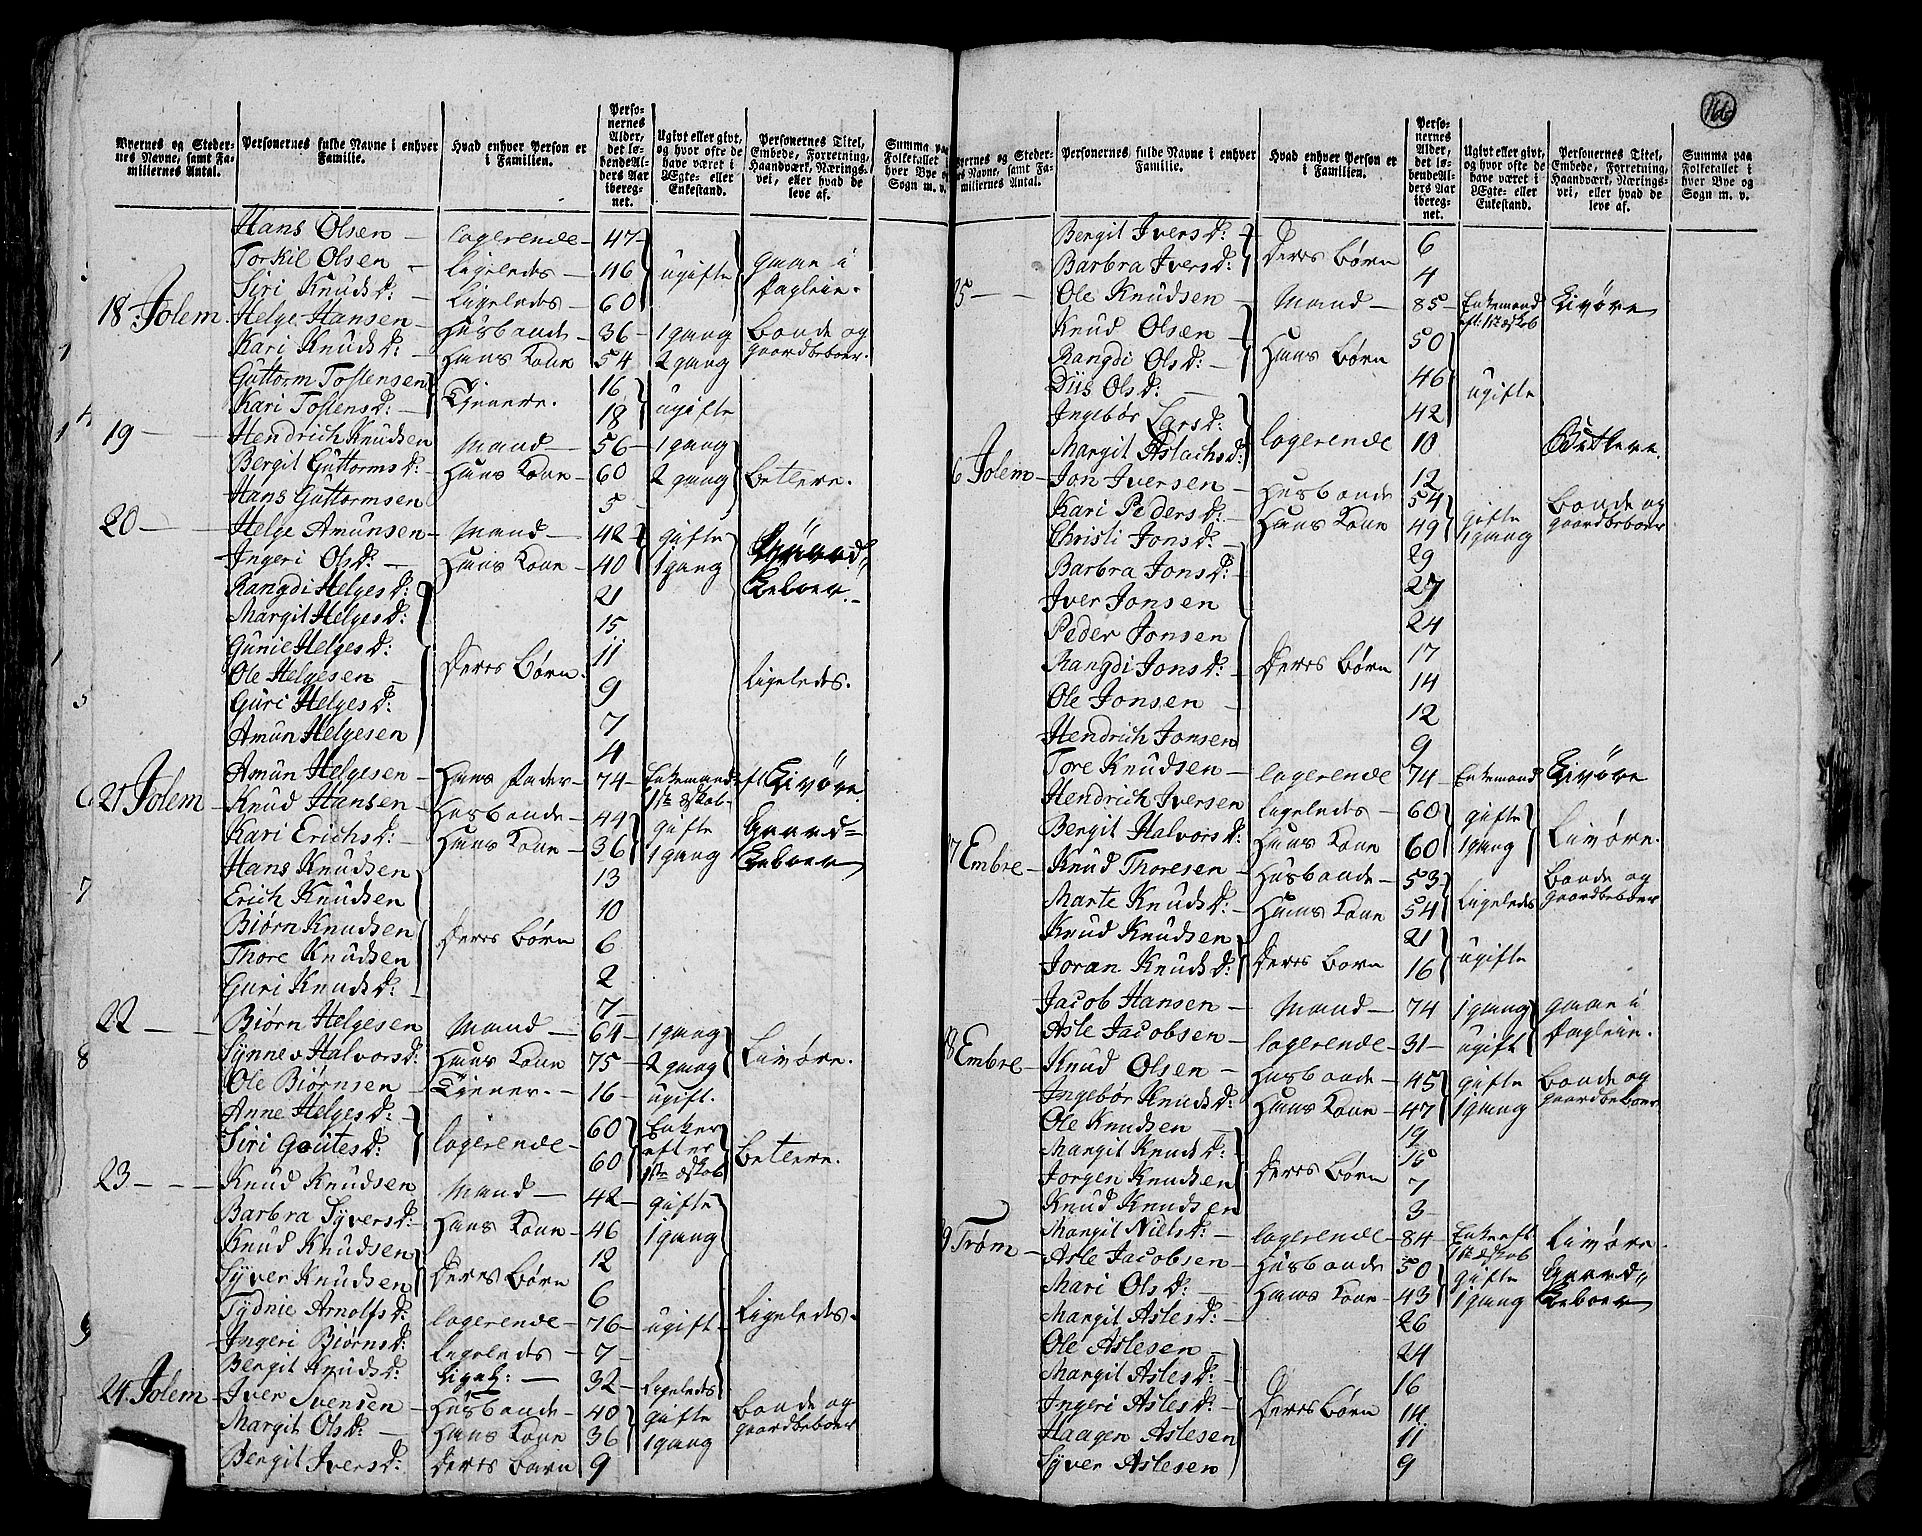 Byernes og Stedernes Navne, samt Familiernes Antal.
Personernes fulde Navne i enhver Familie.
Hvad enhver Person er i Familien.
Personernes Alder, det løbende Alders Aar iberegnet.
Ugivt eller givt, og hvor ofte de have været i Ægte- eller Enkestand.
Personernes Titel, Embede, Forretning, Haandværk, Næringsvei, eller hvad de leve af.
Summa paa Folketallet i hver Bye og Sogn m. v.
Hans Olsen – logerende – 47 ugifte gaae i
Torkil Olsen – Ligeledes – 46 Dagleie.
Siri Knudsd: – Ligeledes – 60
18 Jolem Helge Hansen – Husbonde – 36 – 1 gang Bonde og
Kari Knudsd: – Hans Kone 54 2 gang gaardbeboer.
Guttorm Tostensen Tjenere. 16 ugifte
Kari Tostensd: – 18
19 – – Hendrich Knudsen Mand – 56 – 1 gang
Bergit Guttormsd: Hans Kone – 60 2 gang Betlere.
Hans Guttormsen 5
20 – – Helge Amunsen – Mand – 42 gifte
Ingeri Olsd: – Hans Kone – 40 1 gang beboer.
Rangdi Helgesd: 21
Margit Helgesd: 15
Gunie Helgesd: Deres Børn. 11
Ole Helgesen – 9 Ligeledes.
Guri Helgesd: 7
Amun Helgesen 4
Amun Helgesen – Hans Fader – 74 – Enkemand ef 1ste Ægteskab Livøre
21 Jolem – Knud Hansen – Husbonde – 44 gifte Gaard=
Kari Erichsd: – Hans Kone – 36 1 gang beboer
Hans Knudsen 13
Erich Knudsen 10
Biørn Knudsen Deres Børn 6
Thore Knudsen 2
Guri Knudsd: – 7
22 – – Biørn Helgesen Mand – 64 – 1 gang
Synnev Halvorsd: Hans Kone 75 – 2 gang Livøre.
Ole Biørnsen – Tjener. – 16 – ugift.
Anne Helgesd: logerende – 60 Enker
Siri Goutesd: 60 efter 1ste Betlere.
23 – – – Knud Knudsen Mand – 42 – gifte
Barbra Syversd: – Hans Kone – 46 1 gang
Knud Knudsen Deres Børn 12
Syver Knudsen 6
Tydnie Arnolfsd: logerende – 76 – ugift – Ligeledes.
Ingeri Biørnsd: Ligeledes – 7 –
Bergit Knudsd: Ligel: – 32 – Ligeledes
24 Jolem – Iver Svensen – Husbonde – 40 gifte Bonde og
Margit Olsd: – Hans Kone 36 1 gang gaardbeboer
Bergit Iversd: Deres barn 9
166
Byernes og Stedernes Navne, samt Familiernes Antal.
Personernes fulde Navne i enhver Familie.
Hvad enhver Person er i Familien.
Personernes Alder, det løbende Alders Aar iberegnet.
Ugivt eller givt, og hvor ofte de have været i Ægte- eller Enkestand.
Personernes Titel, Embede, Forretning, Haandværk, Næringsvei, eller hvad de leve af.
Summa paa Folketallet i hver Bye og Sogn m. v.
Bergit Iversd: Deres Børn 6
Barbra Iversd: 4
5 – – Ole Knudsen – Mand – 85 – Enkemand Livøre
Knud Olsen – Hans Børn 50
Rangdi Olsd: – 46 ugifte
Diis Olsd: – 42
Ingebør Larsd: logerende 10
Margit Aslachsd: 12
6 Jolem – Jon Iversen – Husbonde 54 gifte Bonde og
Kari Pedersd: – Hans Kone 49 1 gang gaardbeboer
Christi Jonsd: – 29
Barbra Jonsd: – 27
Iver Jonsen 24
Peder Jonsen 17
Rangdi Jonsd: – Deres Børn 14
Ole Jonsen – 12
Hendrich Jonsen 9
Tore Knudsen – logerende 74 – Enkemand Livøre
Hendrich Iversen Ligeledes – 60 gifte
Bergit Halvorsd: Hans Kone 60 1 gang Livøre.
7 Embre – Knud Thoresen – Husbonde – 53 Ligeledes Bonde og
Marte Knudsd: – Hans Kone 54 gaardbeboer
Knud Knudsen Deres Børn 21 ugifte
Joran Knudsd: 16
Jacob Hansen – Mand – 74 1 gang gaae i
Asle Jacobsen – logerende – 31 – ugift Dagleie.
8 Embre – Knud Olsen – Husbonde – 45 gifte Bonde og
Ingebør Knudsd: Hans Kone – 47 1 gang gaardbeboer
Ole Knudsen – 19
Margit Knudsd: Deres Børn 10
Jorgen Knudsen 7
Knud Knudsen 3 –
Margit Nielsd: – logerende – 84 – Livøre.
9 Trøm – Asle Jacobsen – Husbonde 50 gifte Gaard
Mari Olsd: – Hans Kone – 43 1 gang beboer
Margit Aslesd: – 26
Ole Aslesen – 24
Margit Aslesd: – 16
Ingeri Aslesd: – Deres Børn 14
Haagen Aslesen 11
Syver Aslesen 9